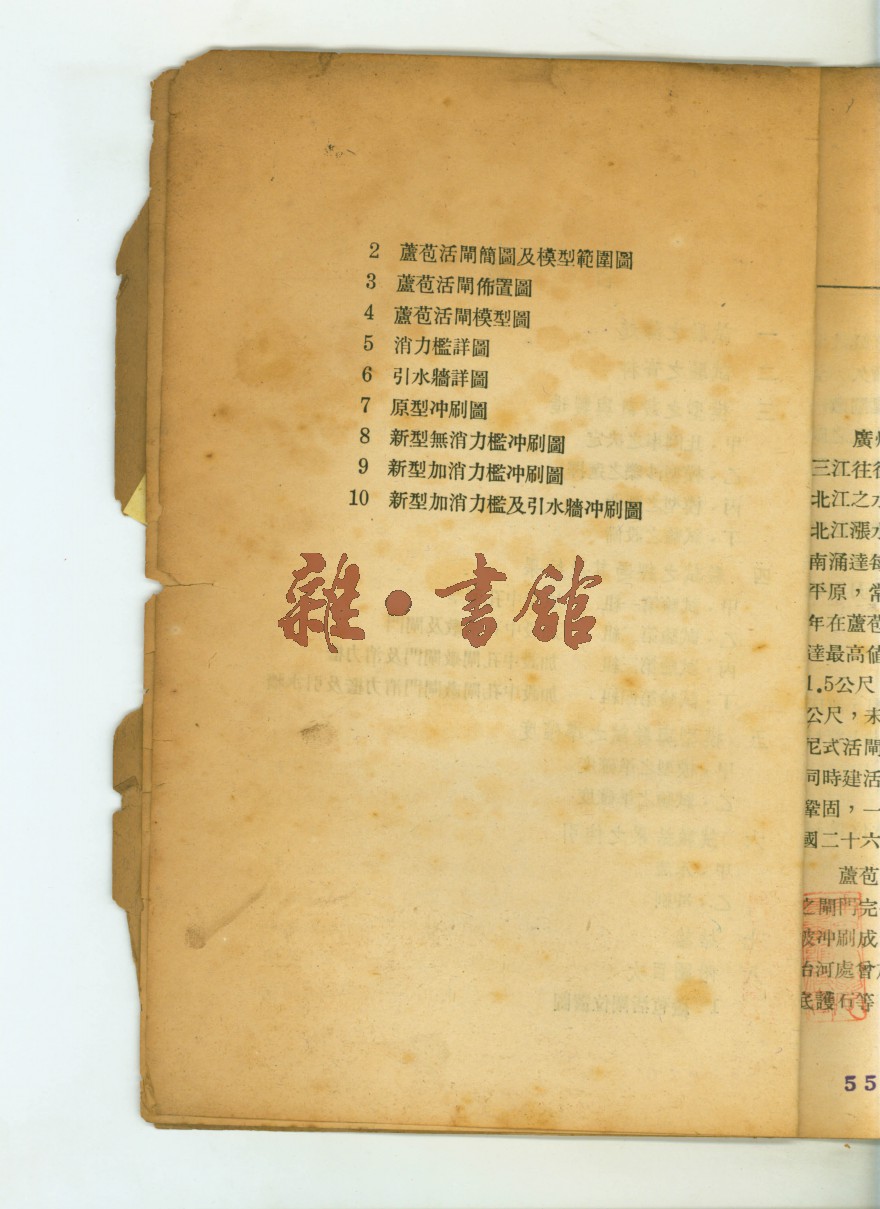 2 蘆苞活閘簡圖及模型範圍圖
3 蘆苞活閘佈置圖
4 蘆苞活閘模型圖
5 消力檻詳圖
6 引水牆詳圖
7 原型冲刷圖
8 新型無消力檻冲刷圖
9 新型加消力檻冲刷圖
10 新型加消力檻及引水牆冲刷圖
雜·書館
廣州
三江往往
北江之水
北江漲水
南涌達每
平原，常
年在蘆苞
達最高值
1.5公尺
公尺，未
尼式活閘
同時建活
鞏固，一
國二十六
蘆苞
之閘門完
被冲刷成
治河處曾
底護石等
55